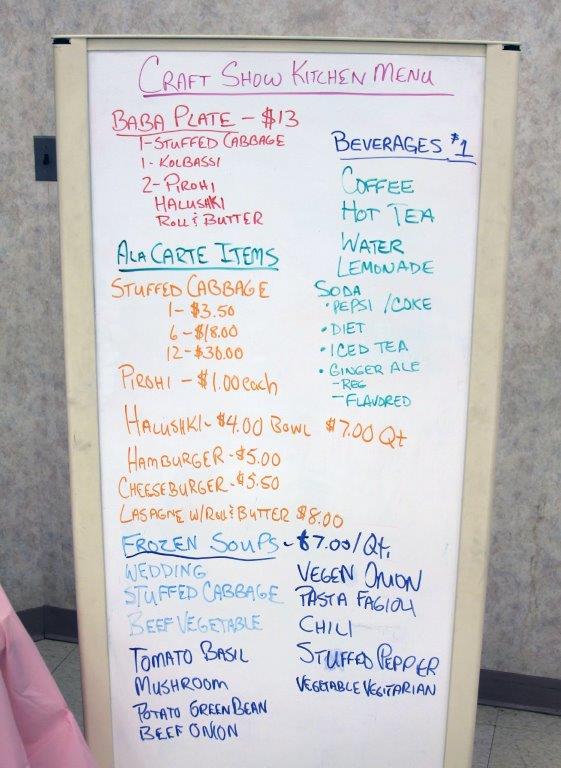 CRAFT SHOW KITCHEN MENU
BABA PLATE - $13
1-STUFFED CABBAGE
1-KOLBASSI
2-PIROHI
HALUSHKI
ROLL & BUTTER
ALA CARTE ITEMS
STUFFED CABBAGE
1-$3.50
6-$18.00
12-$36.00
PIROHI - $1.00 each
HALUSHKI-$4.00 BOWL $7.00 Qt
HAMBURGER-$5.00
CHEESEBURGER-$5.50
LASAGNE W/ROLL & BUTTER $8.00
BEVERAGES $1
COFFEE
HOT TEA
WATER
LEMONADE
SODA
•PEPSI/COKE
•DIET
•ICED TEA
•GINGER ALE
-REG
-FLAVORED
FROZEN SOUPS-$7.00/Qt.
WEDDING
STUFFED CABBAGE
BEEF VEGETABLE
TOMATO BASIL
MUSHROOM
POTATO GREEN BEAN
BEEF ONION
VEGEN ONION
PASTA FAGIOLI
CHILI
STUFFED PEPPER
VEGETABLE VEGITARIAN